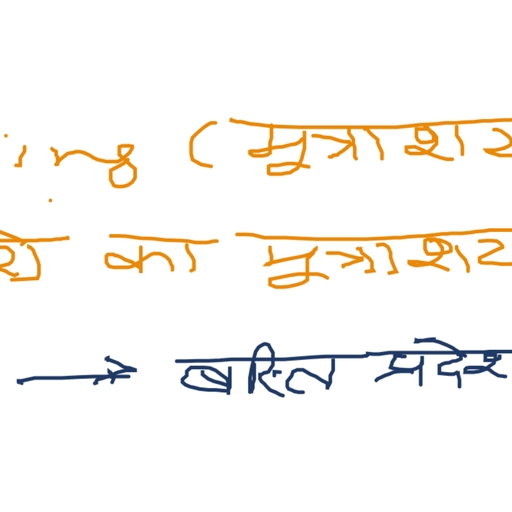 ing (मूत्राश
का मूत्राश
→ बस्ति प्रदेश